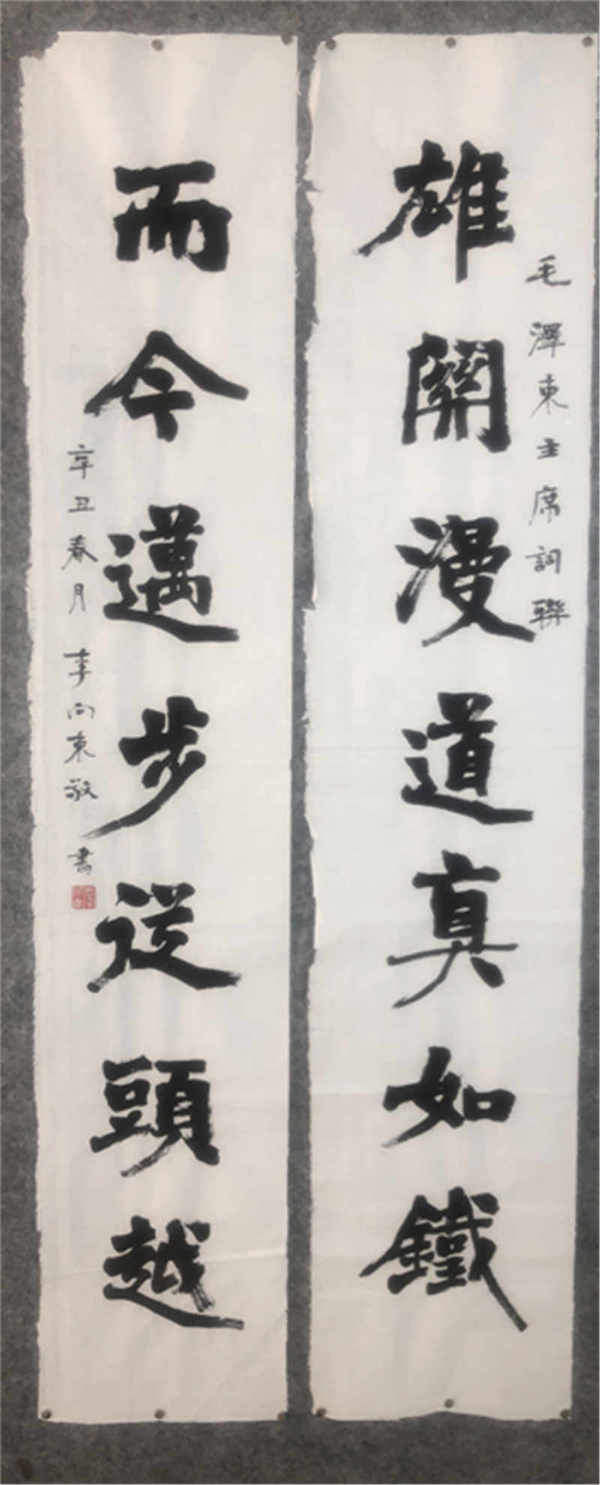 毛澤東主席詞聯
雄關漫道真如鐵
而今邁步從頭越
辛丑春月 李向東敬書